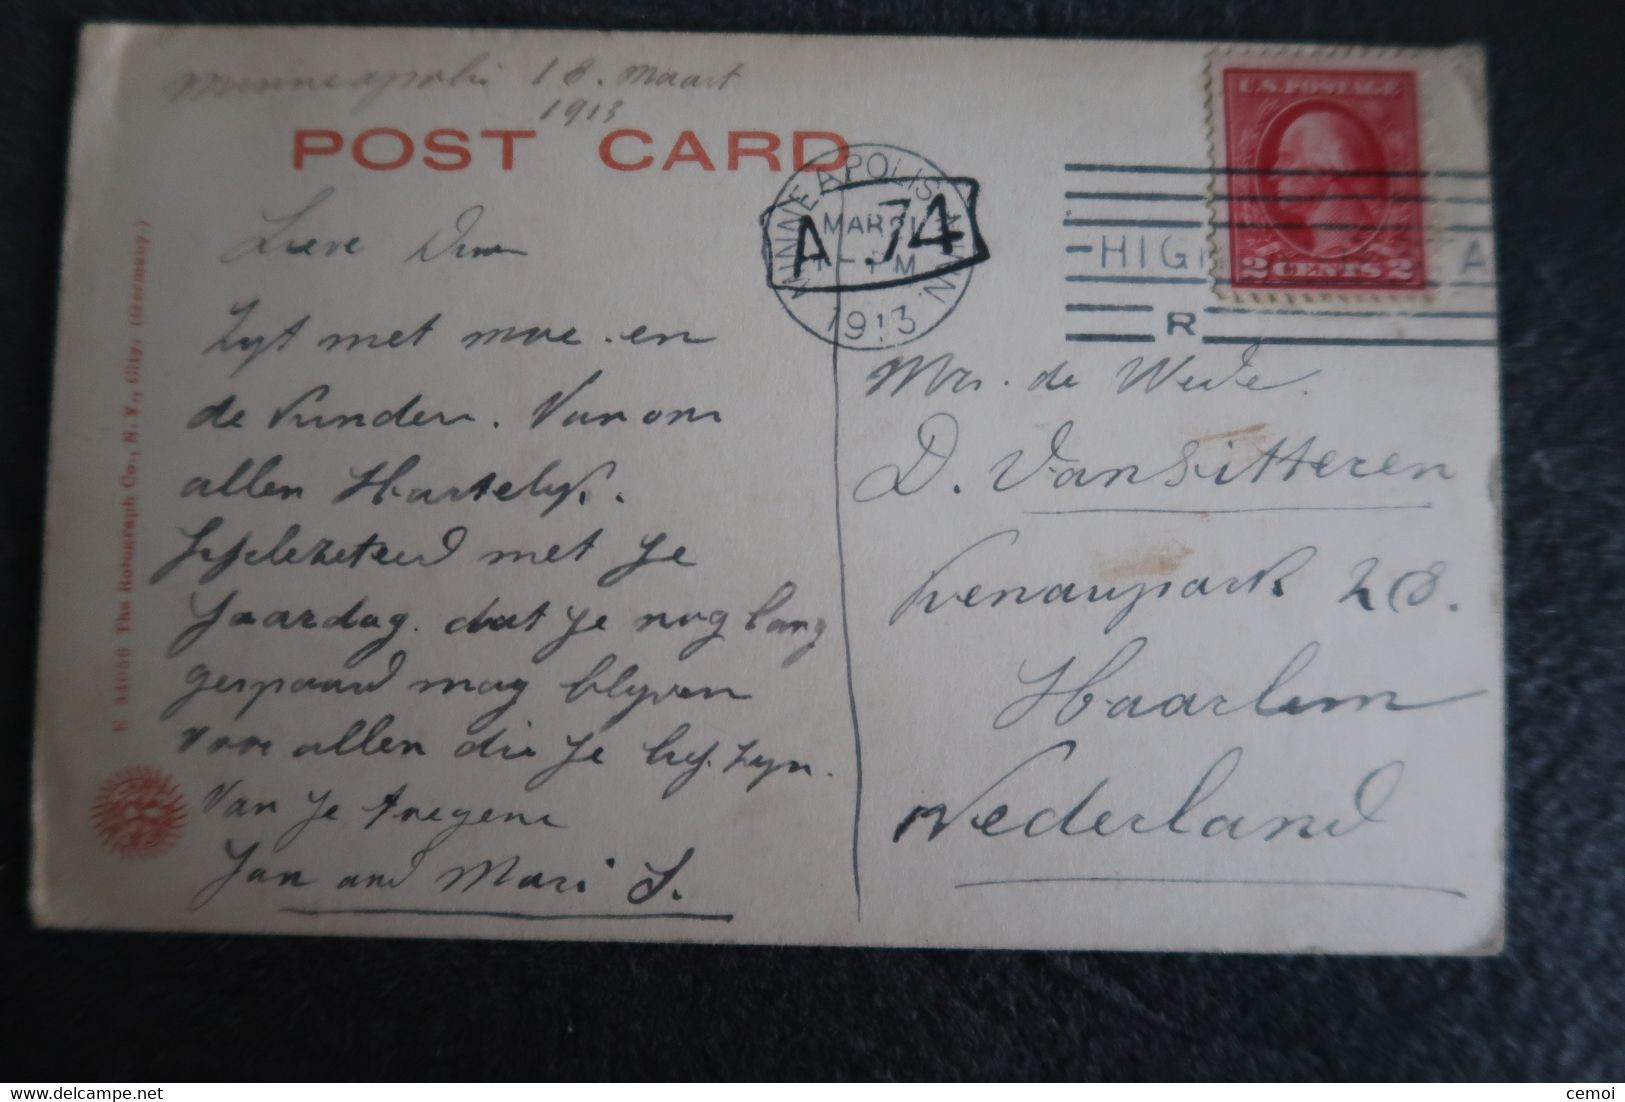 Minneapolis 18. Maart
1913
POST CARD
MINNEAPOLIS, MINN.
MAR 21
PM
1913
A .74
U.S. POSTAGE
2 CENTS 2
HIG A
R
E 44056 The Rotograph Co., N. Y., City. (Germany.)
Lieve
Zyt met moe. en
de kinderen. Van ons
allen Hartelyk.
met je
Jaardag. dat je nog lang
gespaard mag blyven
Voor allen die je lief zyn.
Van je
Jan and Mari S.
Mrs. de Wede.
D. Vansitteren
Kenaupark 28.
Haarlem
Nederland